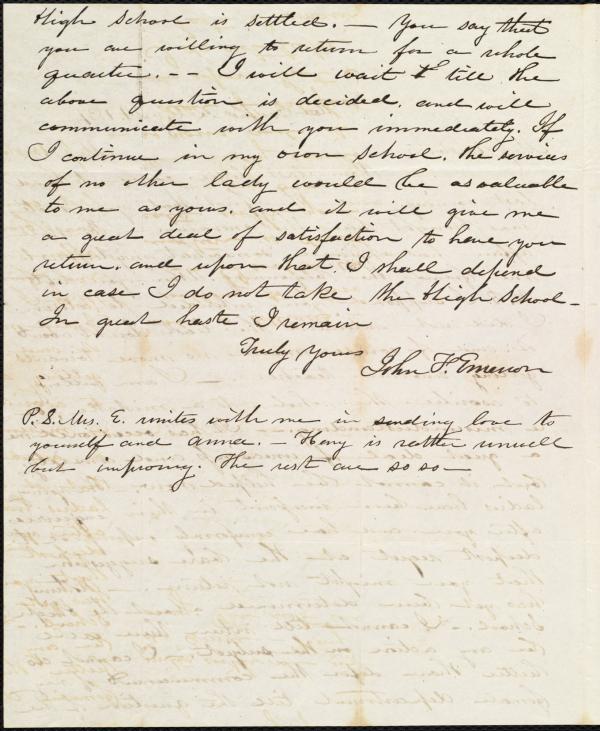 High School is settled. — You say that
you are willing to return for a whole
quarter. — — I will wait till the
above question is decided, and will
communicate with you immediately. If
I continue in my own School, the services
of no other lady would be as valuable
to me as yours, and it will give me
a great deal of satisfaction to have you
return, and upon that I shall depend
in case I do not take the High School —
In great haste I remain
Truly Yours
John F. Emerson
P.S. Mrs. E. unites with me in sending love to
yourself and Anna. — Henry is rather unwell
but improving. The rest are so so —